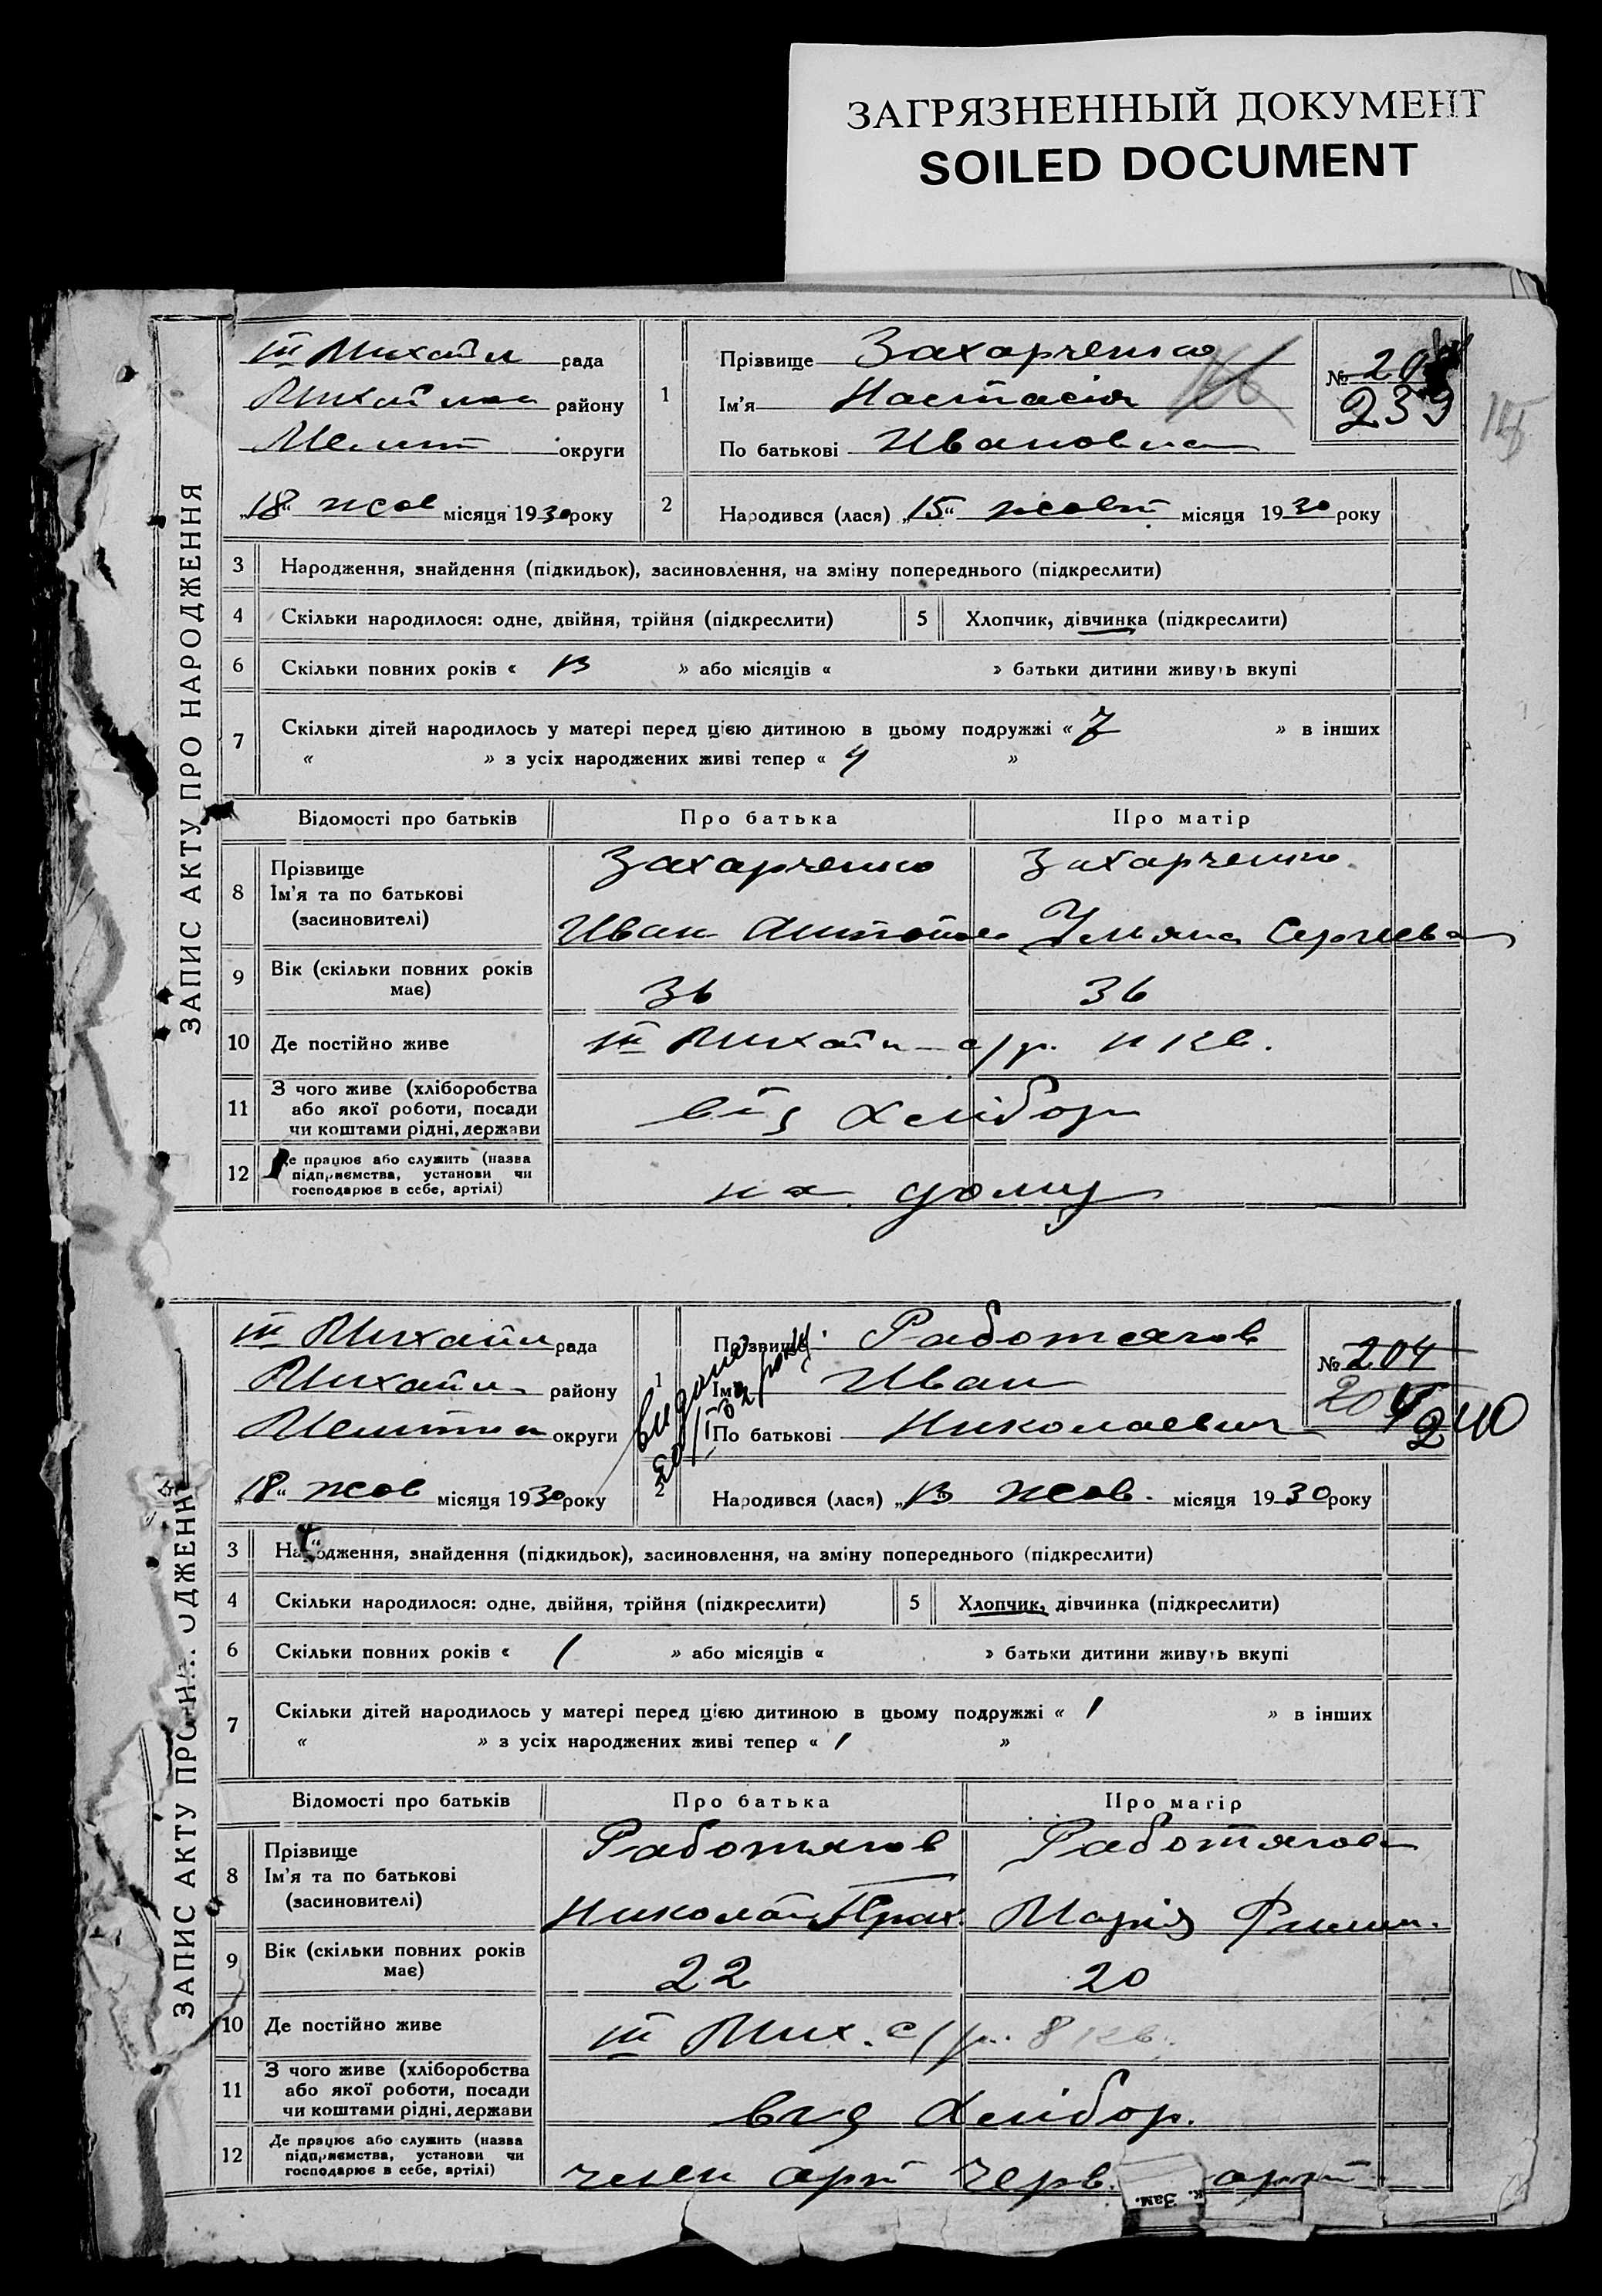 ЗАГРЯЗНЕННЫЙ ДОКУМЕНТ
SOILED DOCUMENT
ЗАПИС АКТУ ПРО НАРОДЖЕННЯ
III Михайл рада
району
Меліт округи
"18" жов місяця 1930 року
1
Прізвище Захарченко
Ім'я Настасія
По батькові Ивановна
№
239
2
Народився (лася) "15" жовт місяця 1930 року
3 Народження, знайдення (підкидьок), засиновлення, на зміну попереднього (підкреслити)
4 Скільки народилося: одне, двійня, трійня (підкреслити) 5 Хлопчик, дівчинка (підкреслити)
6 Скільки повних років « 13 » або місяців « » батьки дитини живуть вкупі
7 Скільки дітей народилось у матері перед цією дитиною в цьому подружжі « 7 » в інших
« » з усіх народжених живі тепер « 4 »
Відомості про батьків Про батька Про матір
8 Прізвище
Ім'я та по батькові
(засиновителі)
Захарченко Захарченко
Иван Ульяна Сергеева
9 Вік (скільки повних років
має)
36 36
10 Де постійно живе III Михайл с/р. кв.
11 З чого живе (хліборобства
або якої роботи, посади
чи коштами рідні, держави
від хлібор
12 Де працює або служить (назва
підприємства, установи чи
господарює в себе, артілі)
на дому
ЗАПИС АКТУ ПРО НАРОДЖЕНН
III Михайл рада
Михайл району
округи
"18" жов місяця 1930 року
1
видана
року
Прізвище Работягов
Ім'я Иван
По батькові Николаевич
№ 204
204
240
2
Народився (лася) "13" жов. місяця 1930 року
3 Народження, знайдення (підкидьок), засиновлення, на зміну попереднього (підкреслити)
4 Скільки народилося: одне, двійня, трійня (підкреслити) 5 Хлопчик, дівчинка (підкреслити)
6 Скільки повних років « 1 » або місяців « » батьки дитини живуть вкупі
7 Скільки дітей народилось у матері перед цією дитиною в цьому подружжі « 1 » в інших
« » з усіх народжених живі тепер « 1 »
Відомості про батьків Про батька Про матір
8 Прізвище
Ім'я та по батькові
(засиновителі)
Работягов Работягова
Николай Марія
9 Вік (скільки повних років
має)
22 20
10 Де постійно живе III Мих. с/р. 8 кв.
11 З чого живе (хліборобства
або якої роботи, посади
чи коштами рідні, держави
від хлібор.
12 Де працює або служить (назва
підприємства, установи чи
господарює в себе, артілі)
член арт черв.
к. Зам.